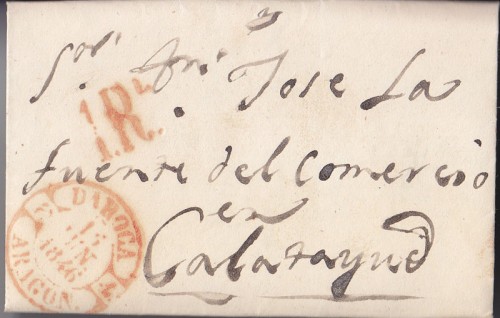 Sor. Dn. Jose La
1R.
fuente del Comercio
en
Calatayud
DAROCA
15
JUN
1846
ARAGON.